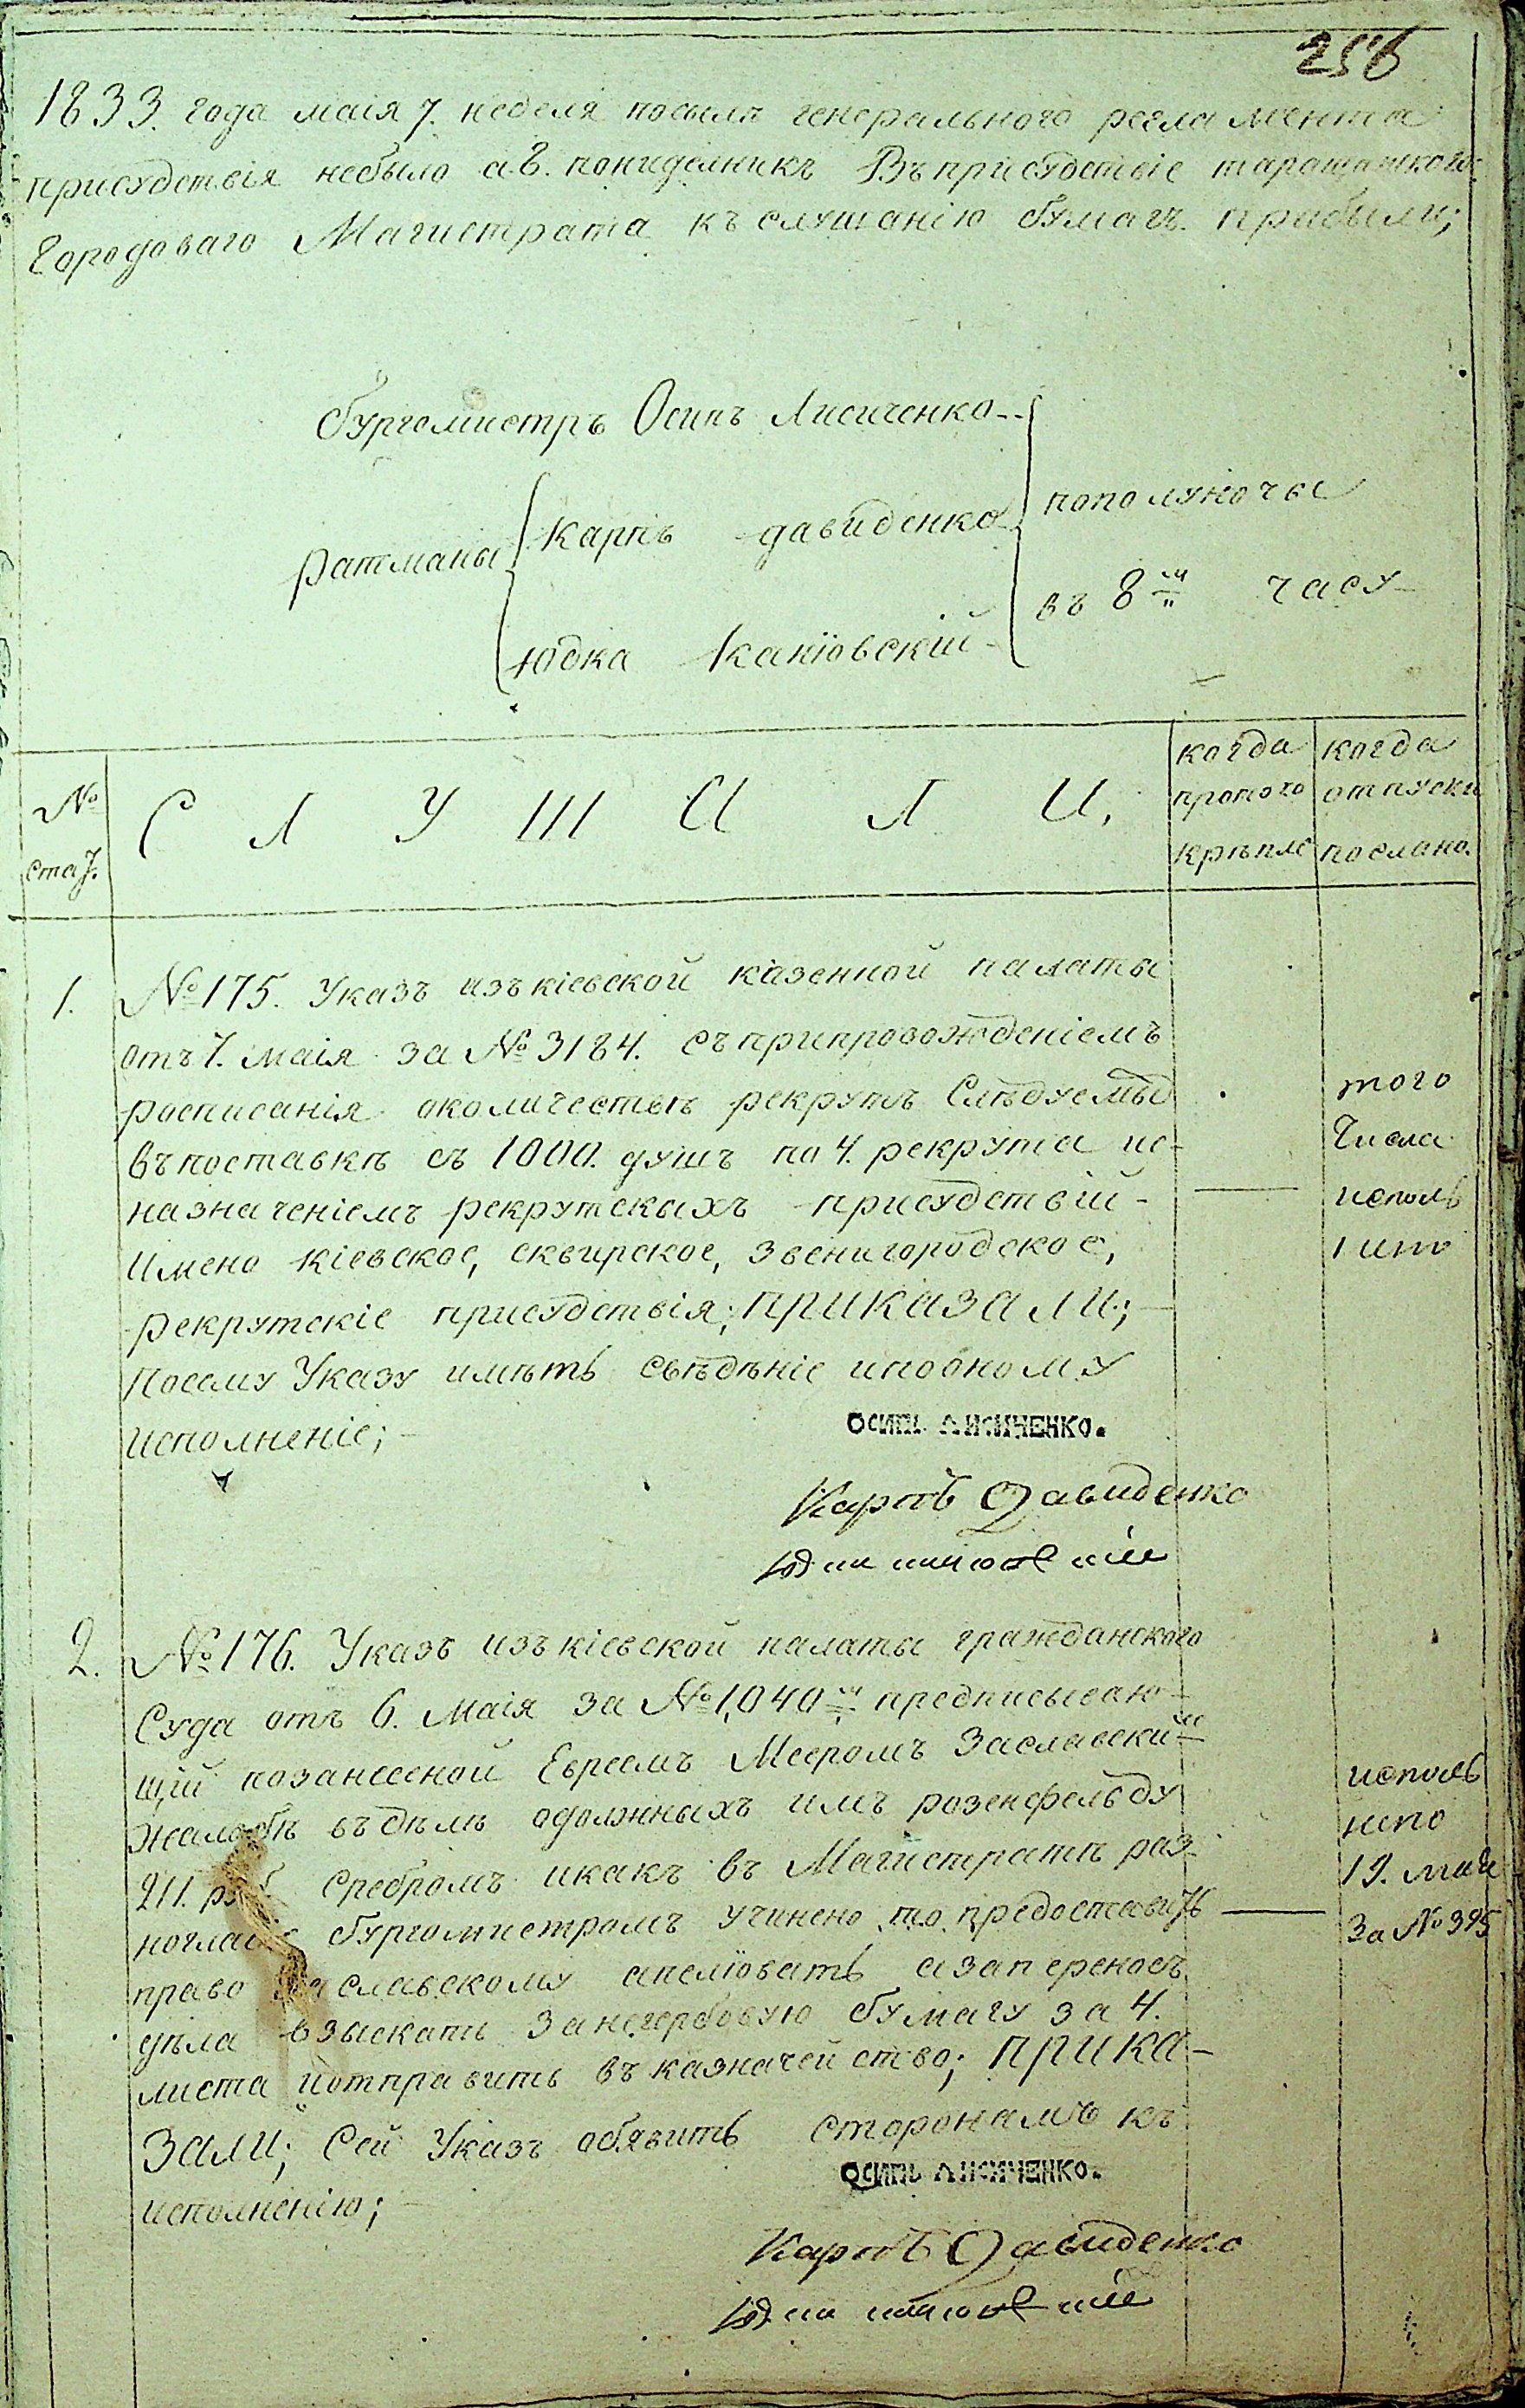 256
1833. года маія 7. неделя посылѣ генерального регламента
присудствія небыло а 8. понидѣлникъ Въ присудствіе таращанского
Городоваго Магистрата къ слушанію бумагъ прибыли;
бургомистръ Осипъ Лисиченко
ратманы Карпъ давиденко пополуночы
Юдка Каніовскій въ 8м часу
№ стат. С Л У Ш А Л И, когда протоко крѣпле когда отпуски послано.
1. №175. Указъ изъ кіевской казенной палаты
отъ 7. маія за №3184. съ припровожденіемъ
росписанія околичествѣ рекрутъ Слѣдуемыхъ
въ поставкѣ съ 1000. душъ по 4. рекрута ис-
назначеніемъ рекрутскыхъ присудствій-
Имено кіевское, сквирское, звенигородское,
рекрутскіе присудствія; ПРИКАЗАЛИ;
Посему Указу имѣть свѣдѣніе ипооному
исполненіе;
того
Числа
исполь
нито
ОСИПЪ ЛИСИЧЕНКО.
Карпъ Давиденко
2. №176. Указъ изъ кіевской палаты гражданского
Суда отъ 6. Маія за №1,040м предписываю-
щій позанесеной Евреемъ Мееромъ Заславским
жалобѣ въ дѣлѣ одолжныхъ имъ розенфельду
211. руб. Сребромъ икакъ въ Магистратѣ раз-
ногласіе бургомистромъ учинено то предоставить
право Заславскому апеліовать азапереносъ
дѣла взыскать занегербовую бумагу за 4.
листа иотправить въ казначейство; ПРИКА-
ЗАЛИ; Сей Указъ обявить сторонамъ къ
исполненію;
исполь
нено
19. маія
За №395
ОСИПЪ ЛИСИЧЕНКО.
Карпъ Давиденко